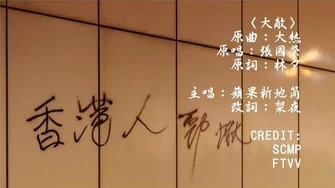 〈大敵〉
原曲：大熱
原唱：張國榮
原詞：林夕
主唱：蘋果新地筒
改詞：架夜
CREDIT:
SCMP
FTVV
香港人